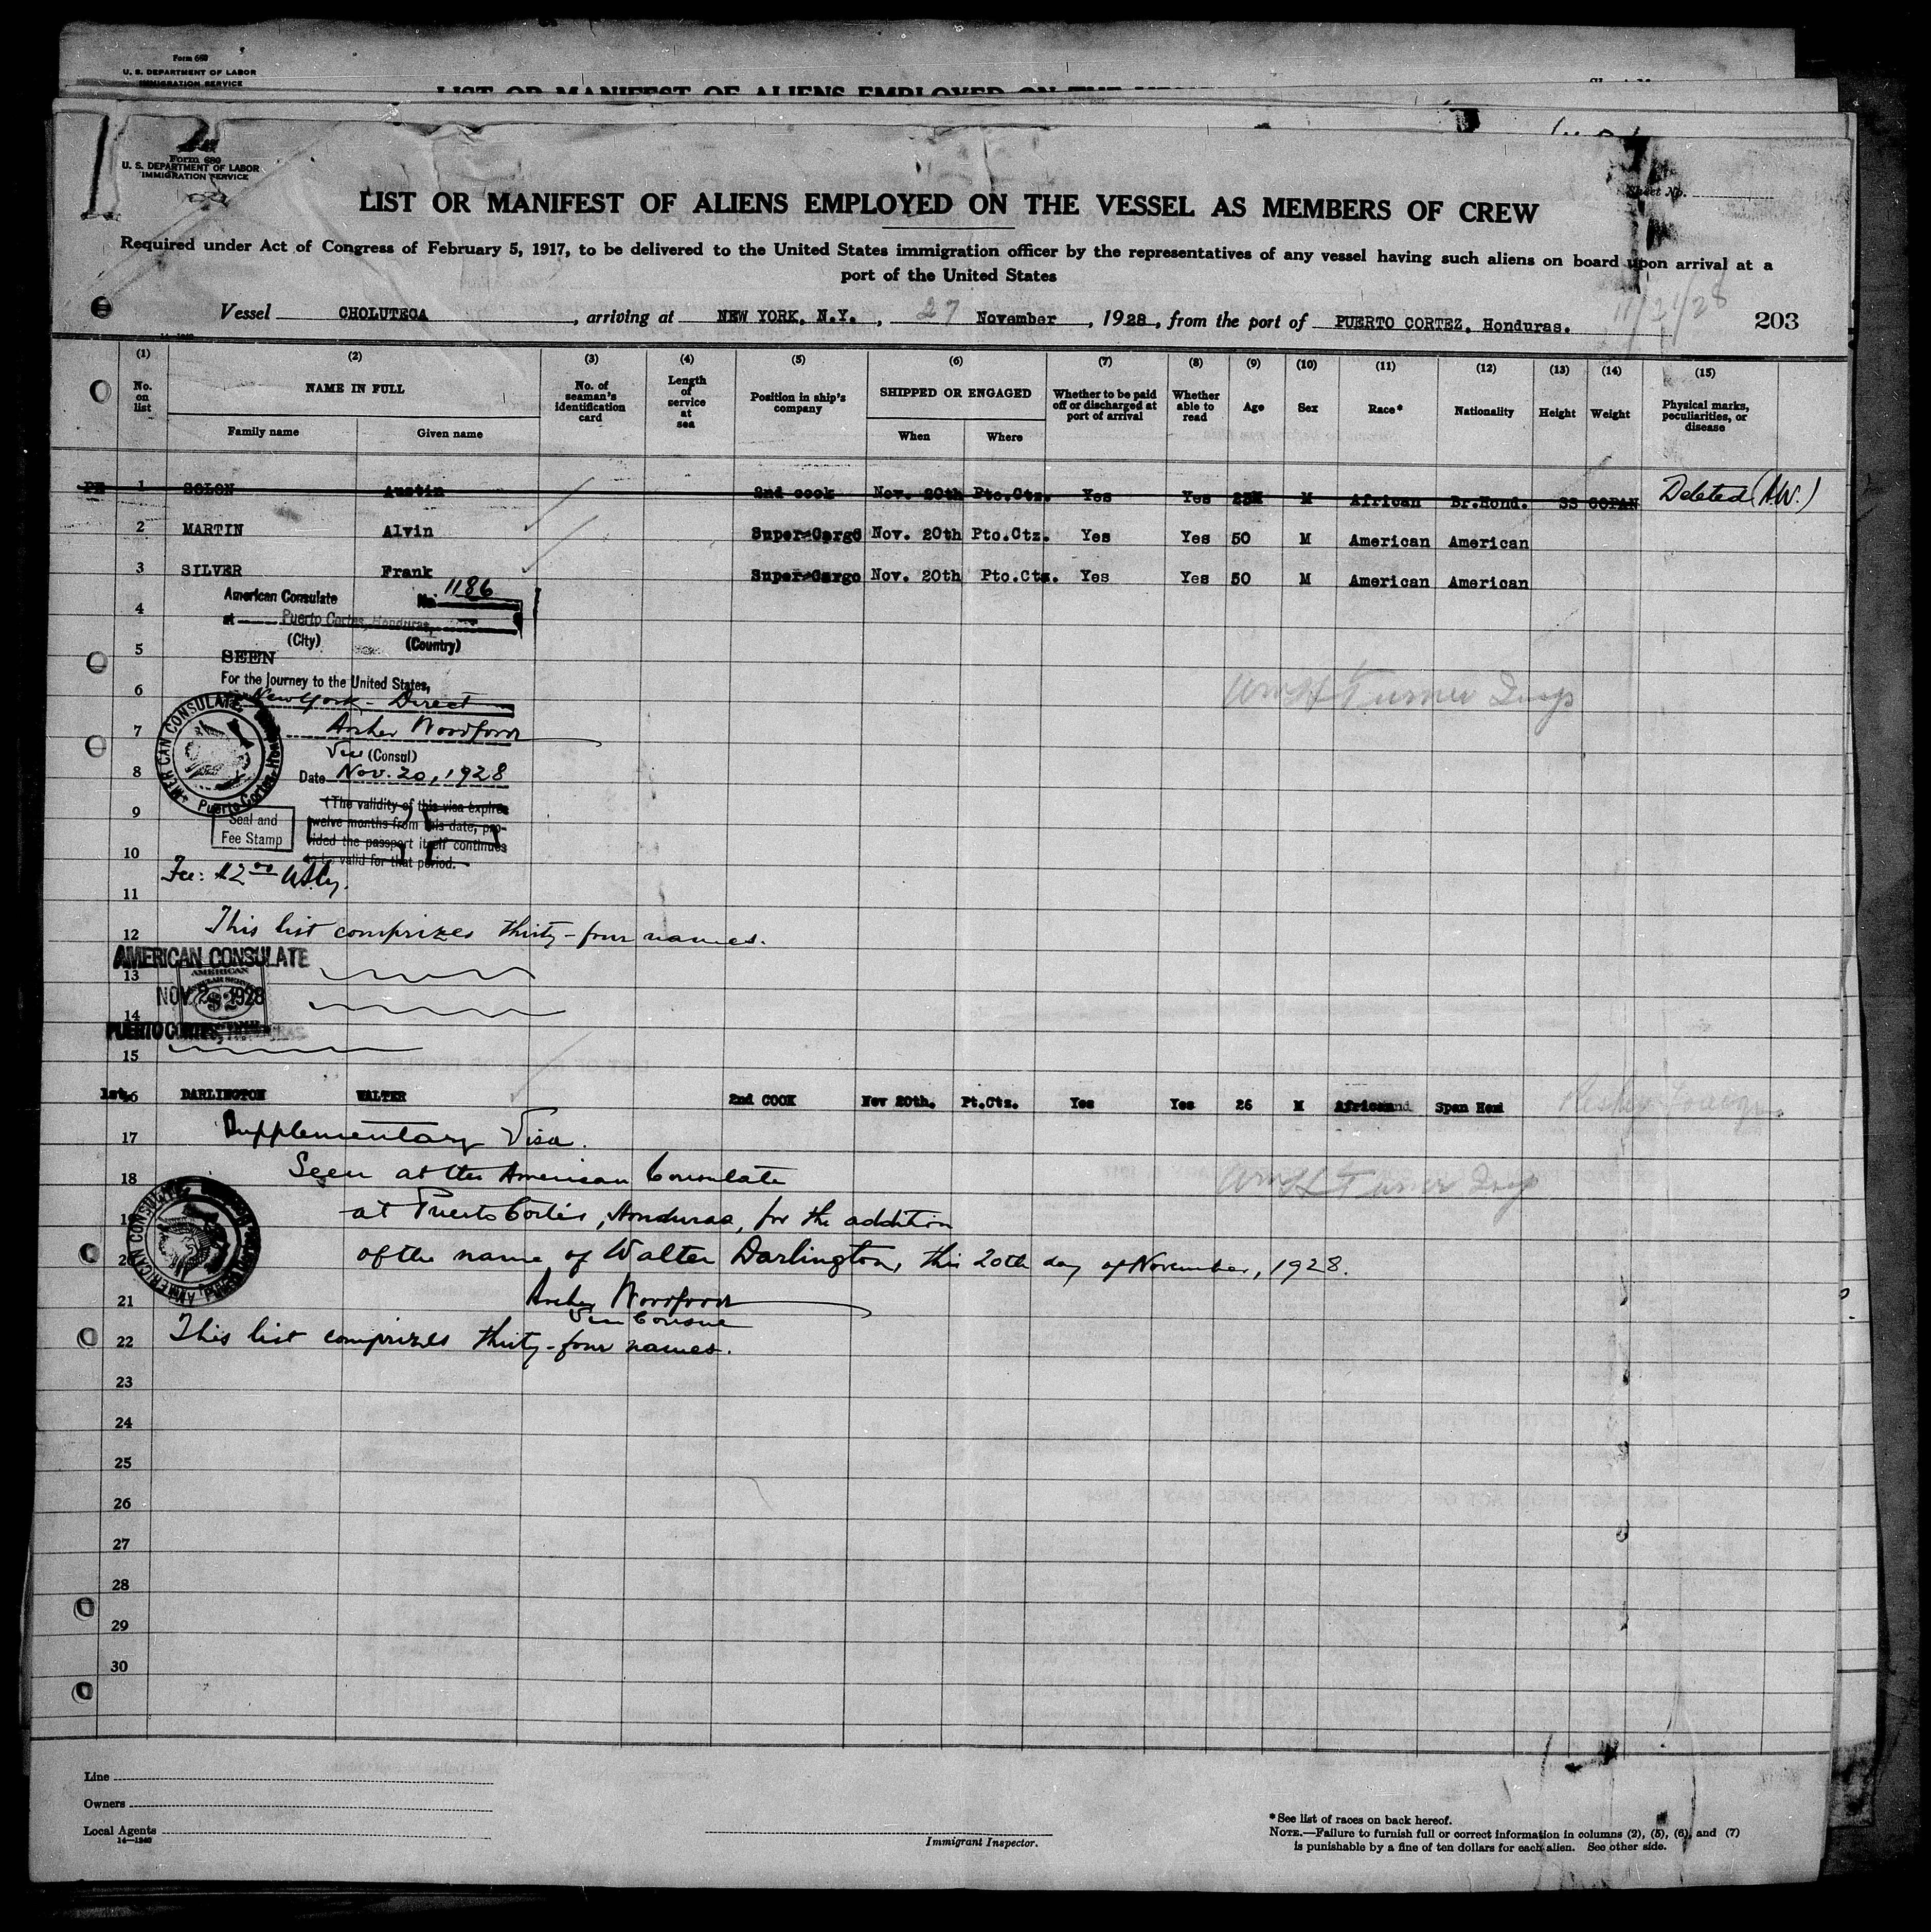 Form 680
U. S. DEPARTMENT OF LABOR
IMMIGRATION SERVICE
LIST OR MANIFEST OF ALIENS EMPLOYED ON THE
Form 680
U. S. DEPARTMENT OF LABOR
IMMIGRATION SERVICE
Sheet No.
LIST OR MANIFEST OF ALIENS EMPLOYED ON THE VESSEL AS MEMBERS OF CREW
Required under Act of Congress of February 5, 1917, to be delivered to the United States immigration officer by the representatives of any vessel having such aliens on board upon arrival at a
port of the United States
Vessel CHOLUTECA, arriving at NEW YORK, N.Y., 27 November, 1928, from the port of PUERTO CORTEZ, Honduras.
203
(1) (2) (3) (4) (5) (6) (7) (8) (9) (10) (11) (12) (13) (14) (15)
No. on list NAME IN FULL No. of seaman's identification card Length of service at sea Position in ship's company SHIPPED OR ENGAGED Whether to be paid off or discharged at port of arrival Whether able to read Age Sex Race* Nationality Height Weight Physical marks, peculiarities, or disease
Family name Given name When Where
1 SOLON Austin 2nd cook Nov. 20th Pto.Ctz. Yes Yes M African Br.Hond. SS COPAN Deleted (A.W.)
2 MARTIN Alvin Super-Cargo Nov. 20th Pto.Ctz. Yes Yes 50 M American American
3 SILVER Frank Super-Cargo Nov. 20th Pto.Ctz. Yes Yes 50 M American American
American Consulate No. 1186
4
at Puerto Cortes, Honduras,
(City) (Country)
5
SEEN
For the journey to the United States,
6
New York - Direct
7
Archer Woodford
Vice (Consul)
8
Date Nov. 20, 1928
AMERICAN CONSULATE Puerto Cortes, Hond
9
(The validity of this visa expires
twelve months from this date, pro-
vided the passport itself continues
to be valid for that period.
Seal and
Fee Stamp
10
Fee: $2.00
11
12
This list comprizes thirty-four names.
AMERICAN CONSULATE
13
AMERICAN
NOV 2 1928
$2
14
PUERTO CORTES, HONDURAS
15
16 DARLINGTON WALTER 2nd COOK Nov 20th. Pt.Ctz. Yes Yes 26 M African Span Hond
17
Supplementary Visa.
18
Seen at the American Consulate
19
at Puerto Cortés, Honduras, for the addition
20
of the name of Walter Darlington, this 20th day of November, 1928.
AMERICAN CONSULATE
21
Archer Woodford
Vice Consul
22
This list comprizes thirty-four names.
23
24
25
26
27
28
29
30
Line
Owners
Local Agents
14—1240
Immigrant Inspector.
*See list of races on back hereof.
NOTE.—Failure to furnish full or correct information in columns (2), (5), (6), and (7)
is punishable by a fine of ten dollars for each alien. See other side.